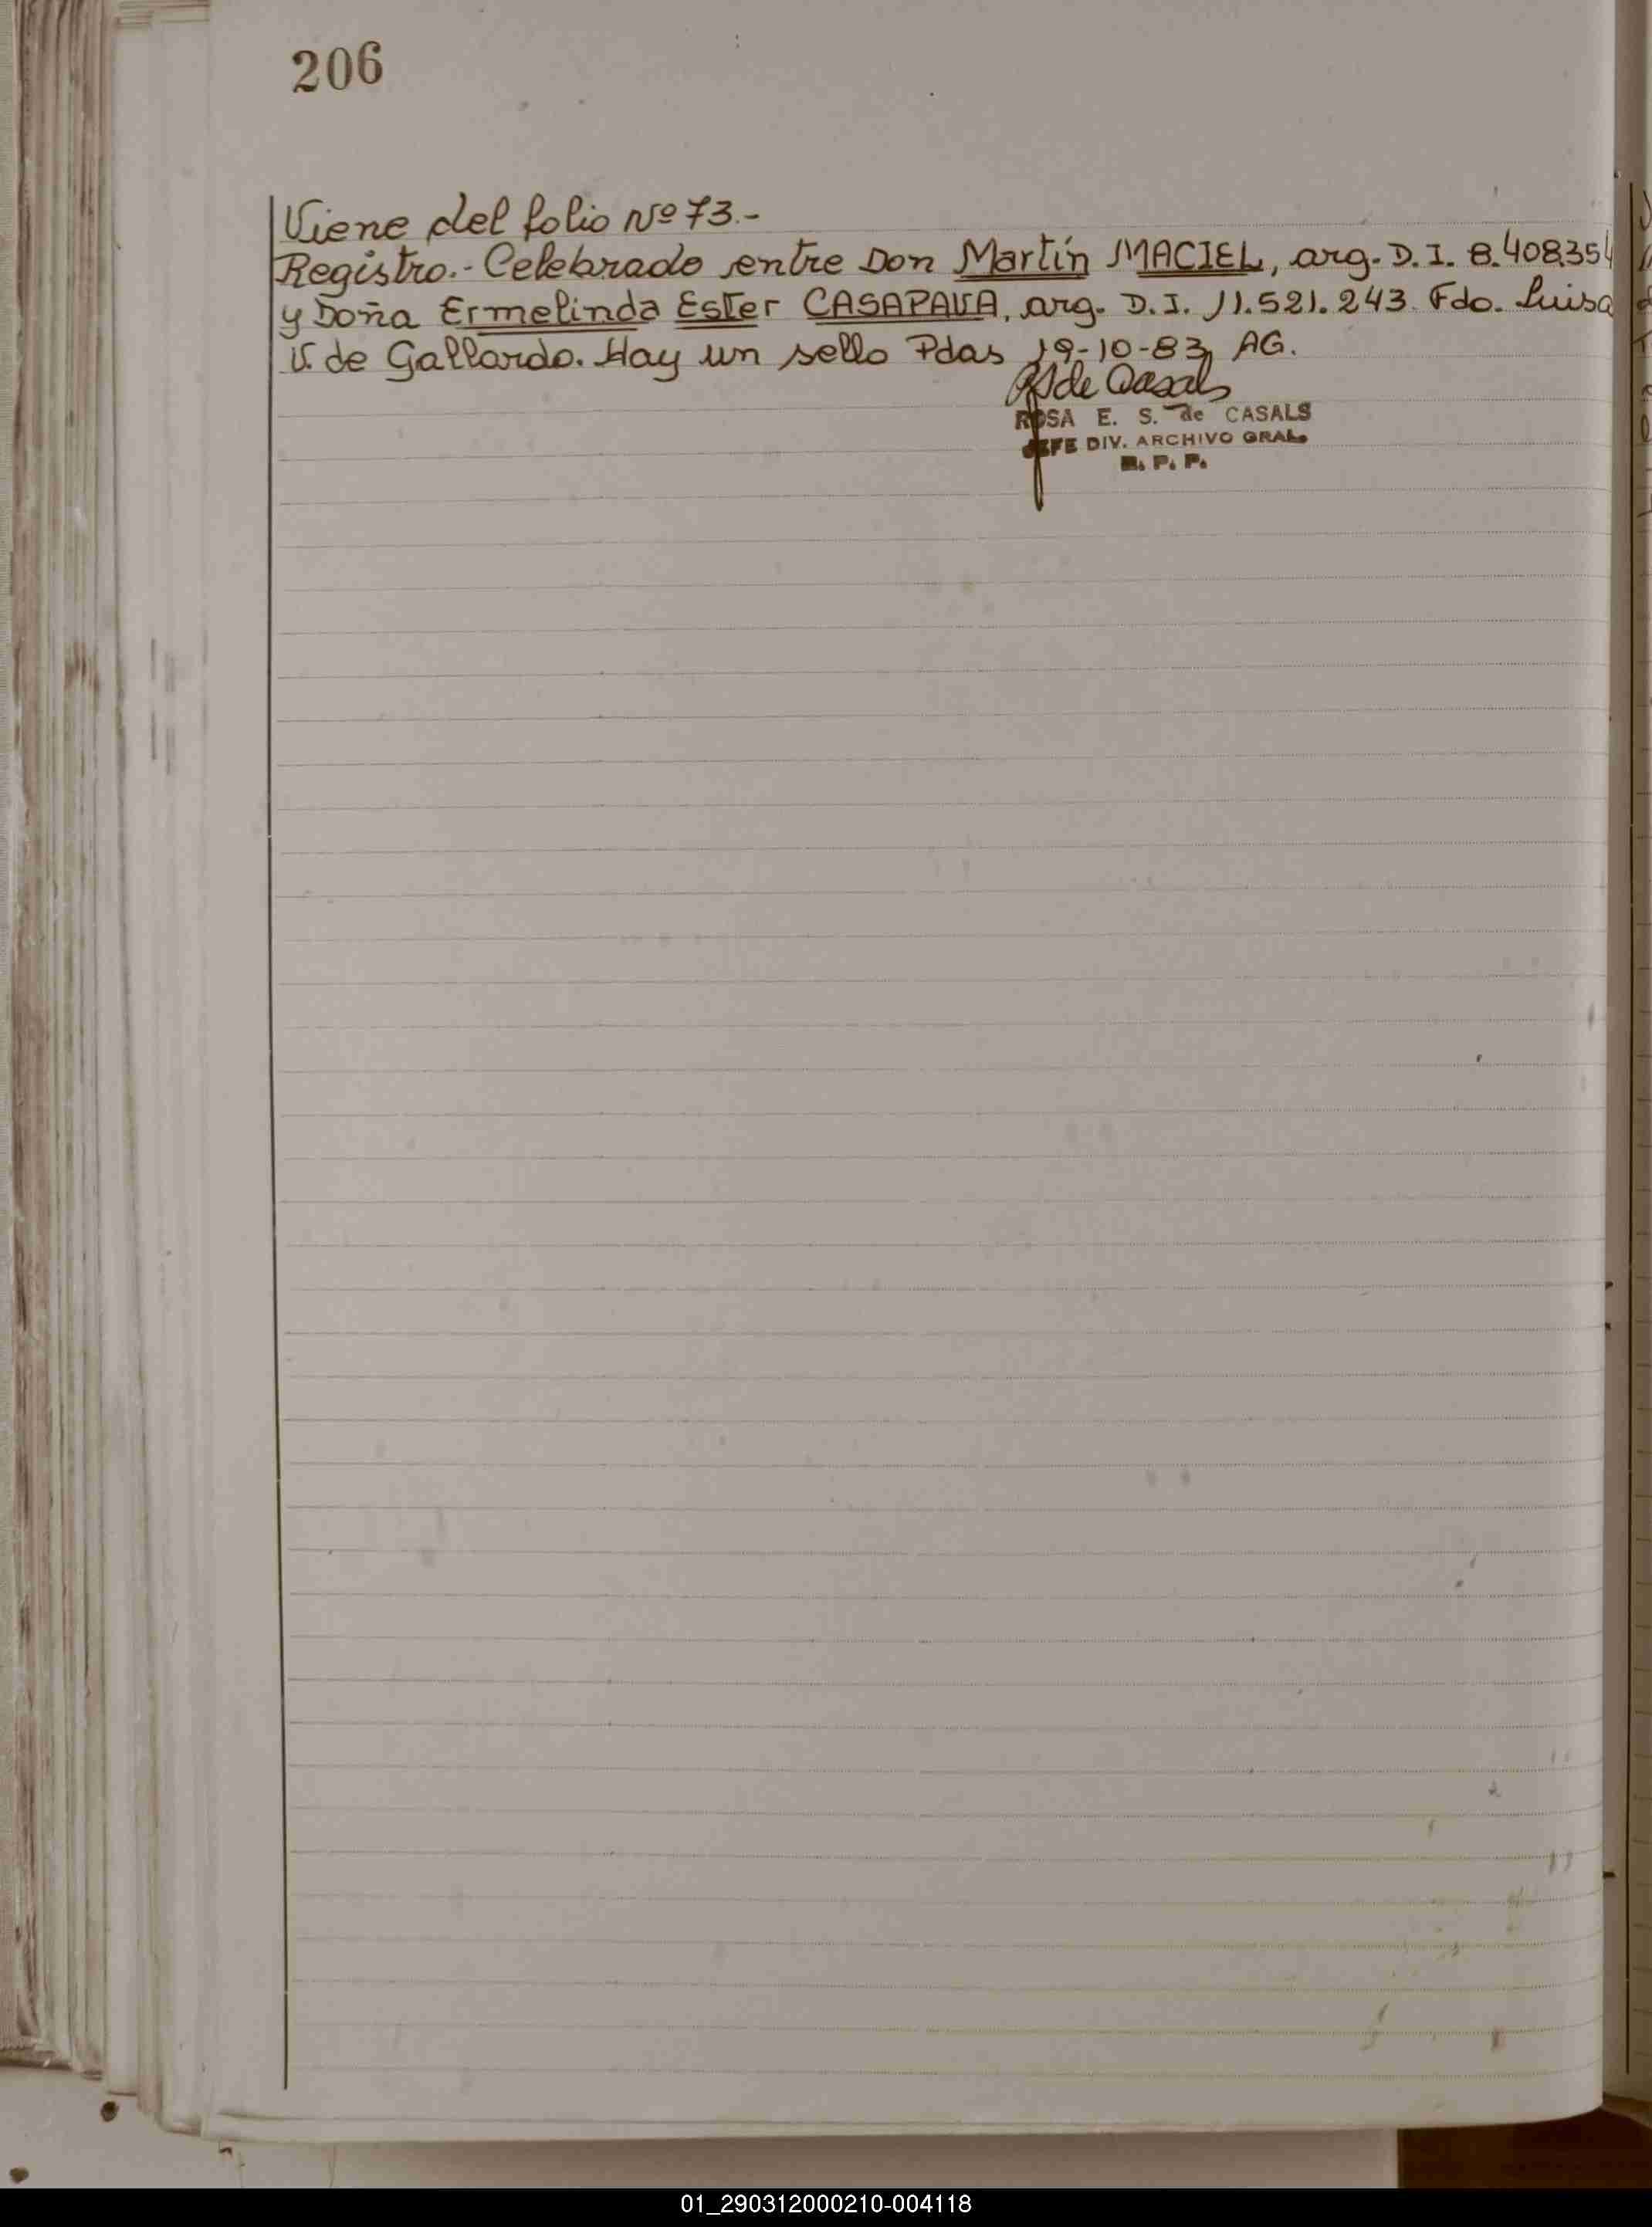 206
Viene del folio Nº 73.-
Registro.- Celebrado entre Don Martín MACIEL, arg. D.I. 8.408.354
y Doña Ermelinda Ester CASAPAVA, arg. D.I. 11.521.243. Fdo. Luisa
V. de Gallardo. Hay un sello Pdas 19-10-83, AG.
RS de Casals
ROSA E. S. de CASALS
JEFE DIV. ARCHIVO GRAL.
R. P. P.
01_290312000210-004118